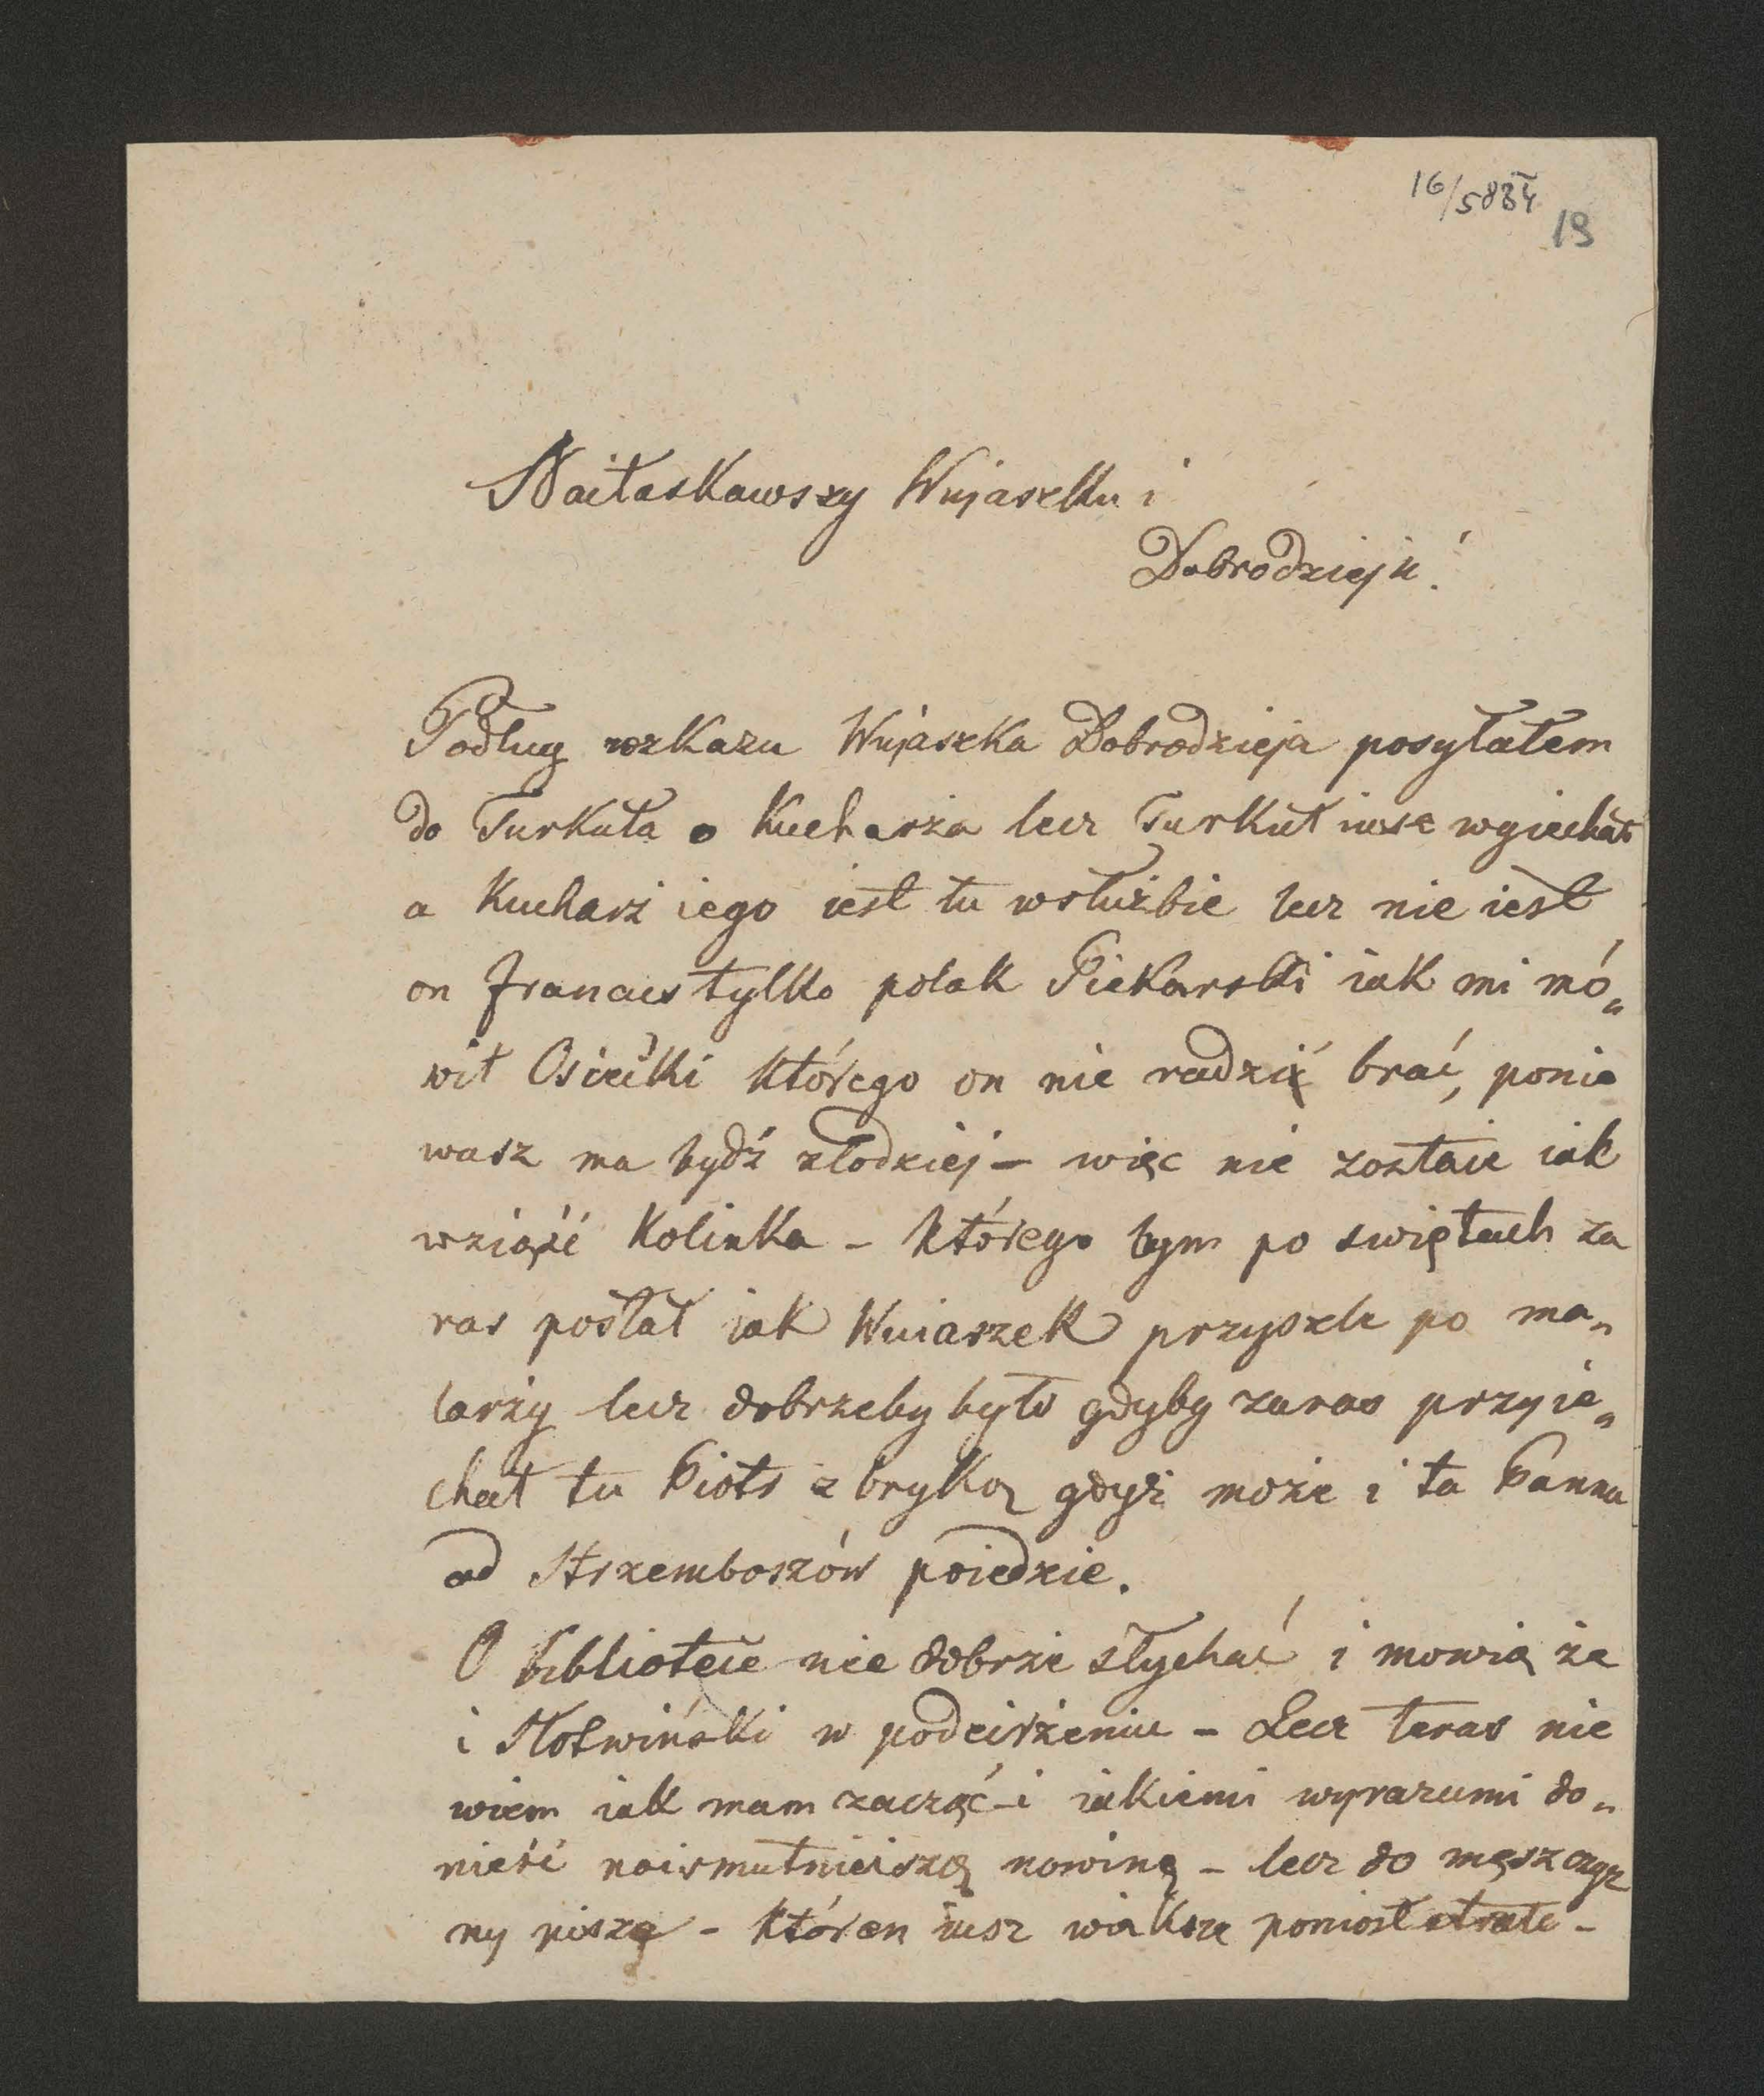 16/5834
19
Naiłaskawszy Wujaszku i
Dobrodzieju!
Podług rozkazu Wujaszka Dobrodzieja posyłałem
do Turkuła o Kucharza lecz Turkuł iusz wyiechał
a Kucharz iego iest tu wsłużbie lecz nie iest
on francus tylko polak Piekarski iak mi mó„
wił Osiecki którego on nie radzi brać, ponie
wasz ma bydź złodziej – więc nie zostaie iak
wziąść Kolinka – którego bym po swiętach za
ras posłał iak Wuiaszek przyszle po ma„
larzy lecz dobrzeby było gdyby zaras przyie„
chał tu Piotr z bryką gdyż może i ta Panna
od Strzemboszów poiedzie.
O bibliotece nie dobrze słychać i mowią że
i Słotwiński w podeirzeniu – Lecz teras nie
wiem iak mam zacząć i iakiemi wyrazami do„
nieść naismutnieiszą nowinę – lecz do męszczyz
ny piszę – któren iusz wiaksze poniosł strate –